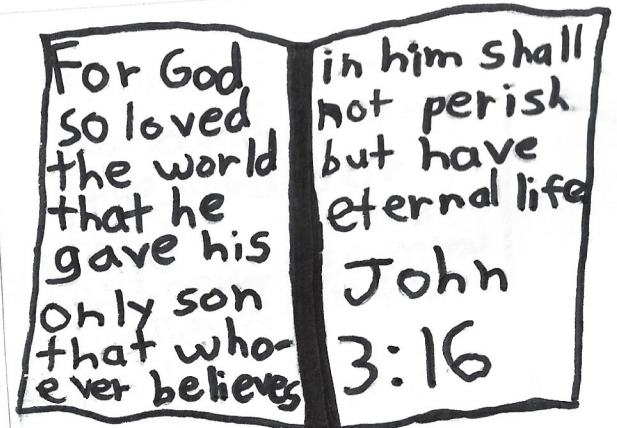 For God
so loved
the world
that he
gave his
only son
that who-
ever believes
in him shall
not perish
but have
eternal life
John
3:16